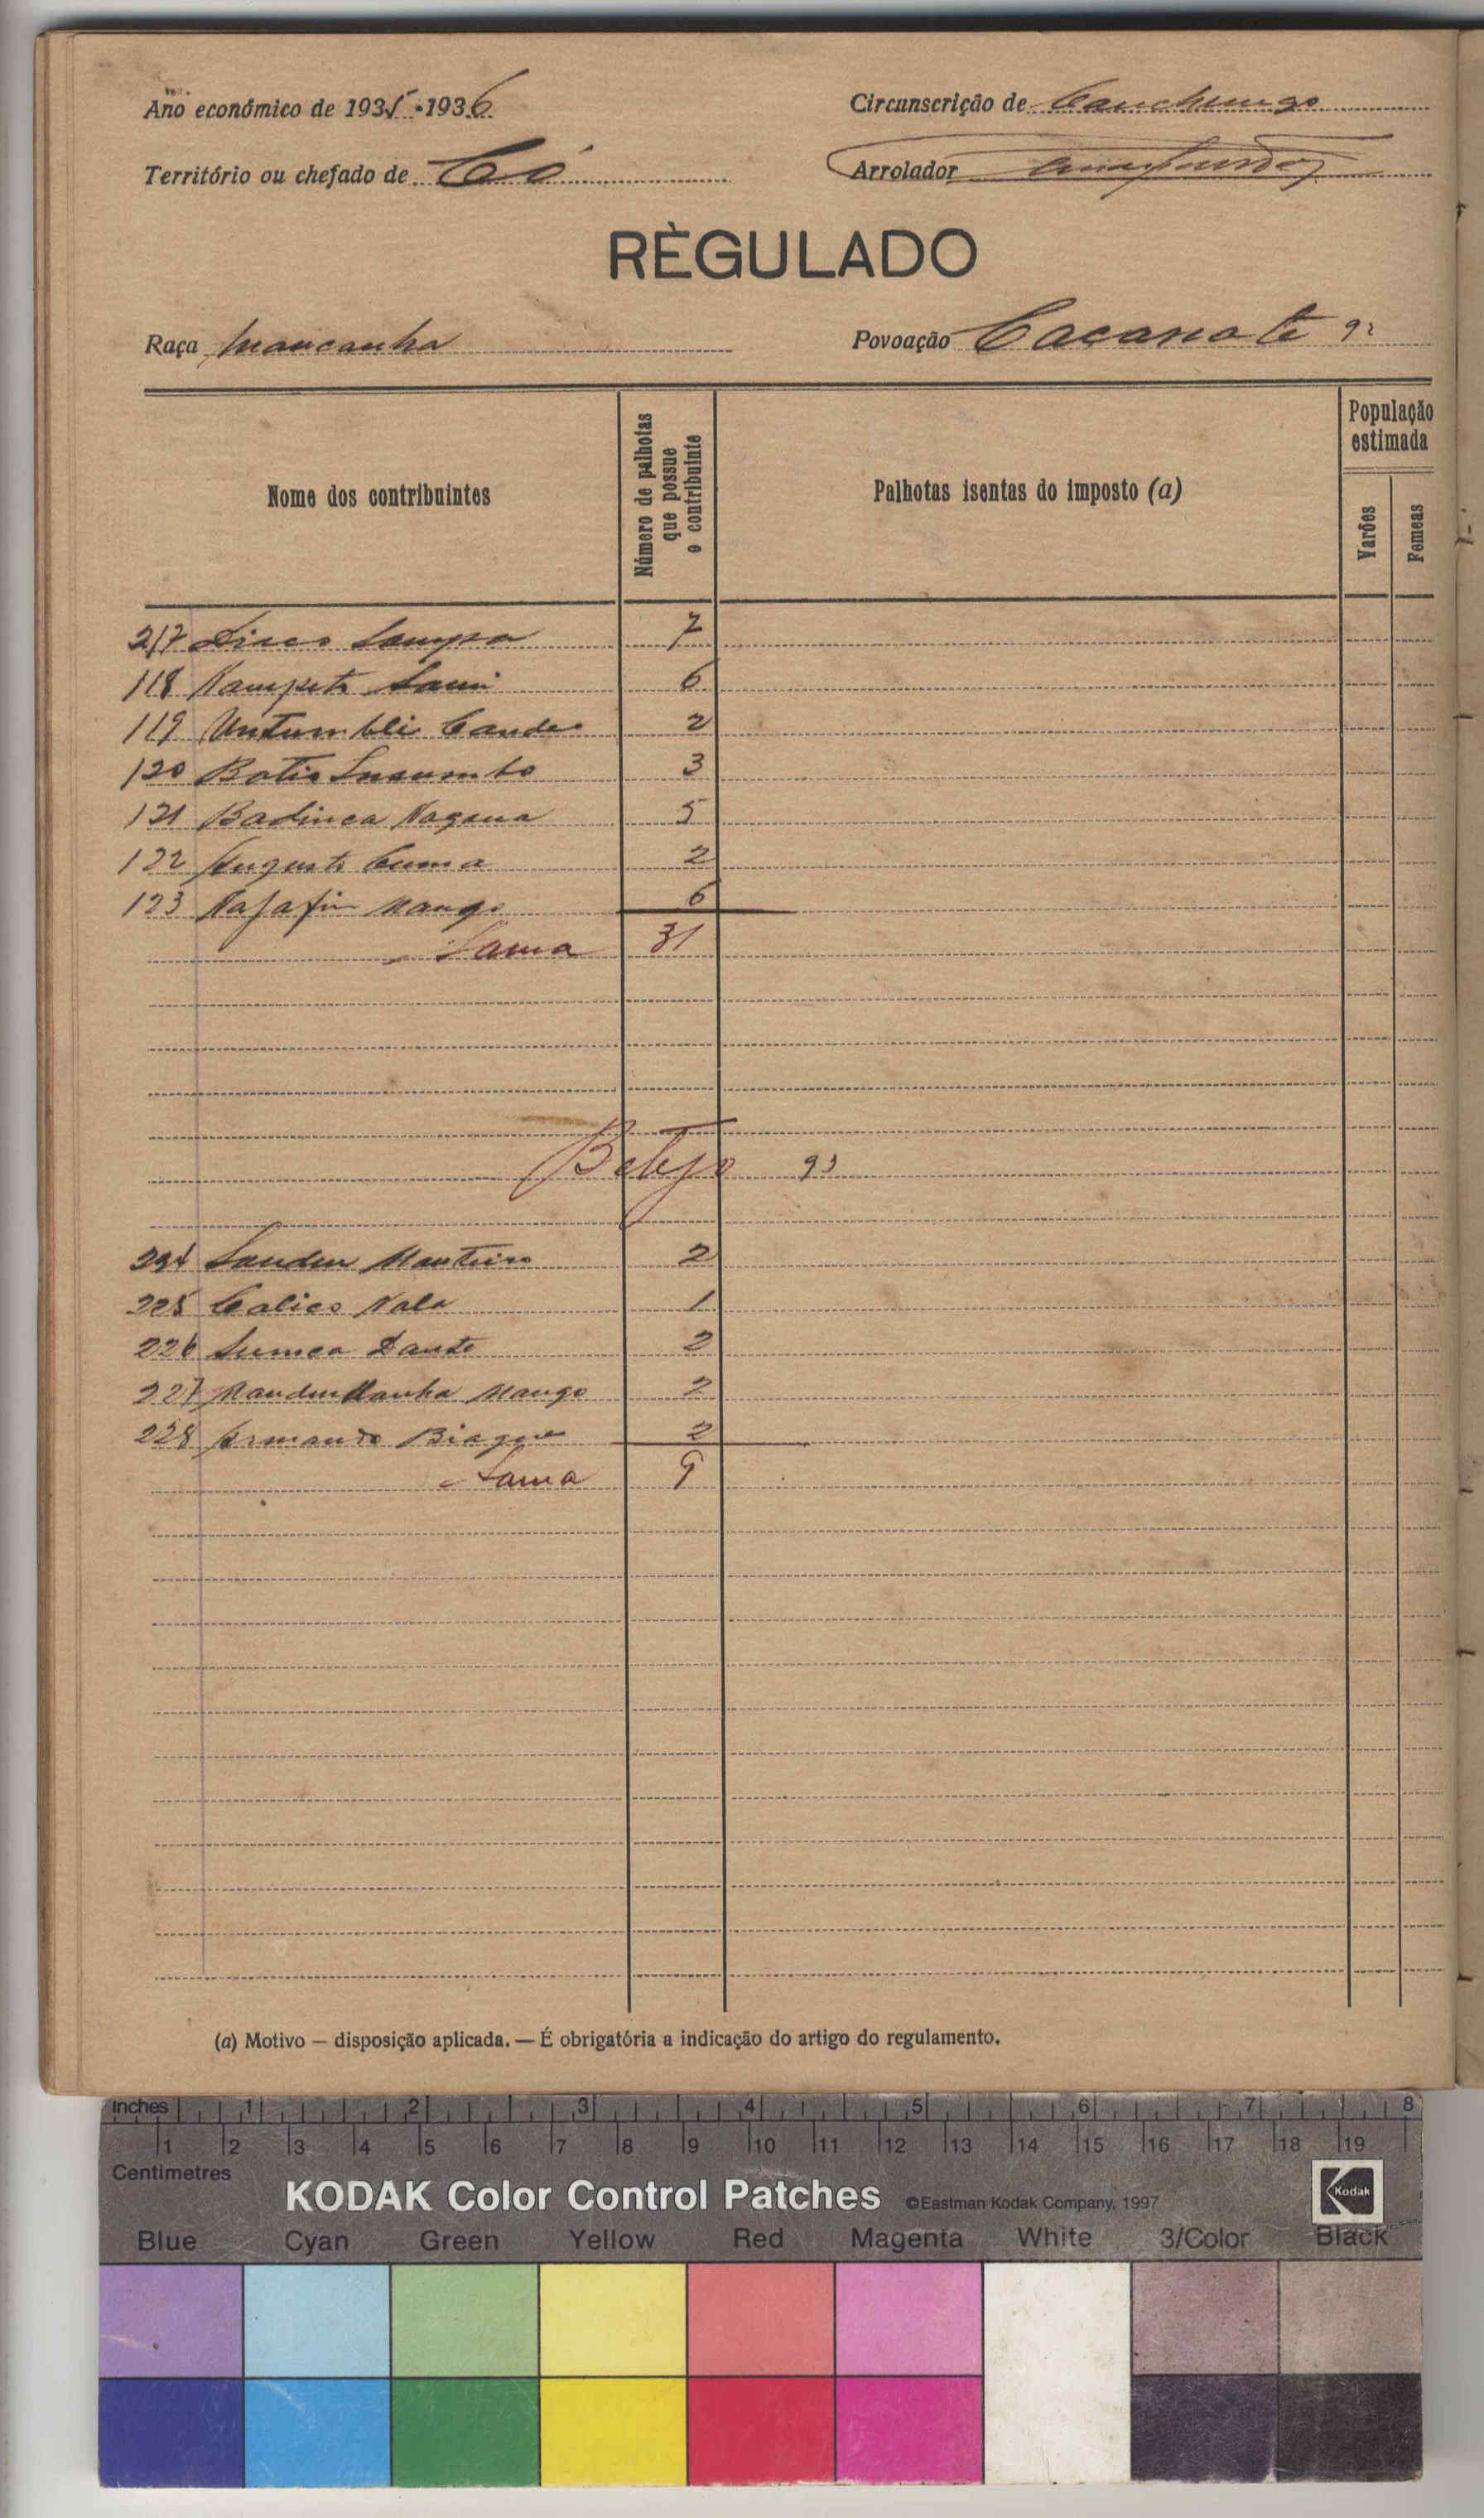 Ano económico de 1935-1936
Circunscrição de Canchungo
Território ou chefado de Có
Arrolador
RÈGULADO
Raça Mancanha
Povoação Cacanote 92
Nome dos contribuintes
Número de palhotas que possue o contribuinte
Palhotas isentas do imposto (a)
População estimada
Varões
Femeas
217 7
118 Nampeto 6
119 Untumbli Cande 2
120 Botia 3
121 Badinca Nagana 5
122 Augusto Cuma 2
123 Nafafin Mango 6
Soma 31
Betejo 93
224 Monteiro 2
225 Calico Nala 1
226 Sumca Dante 2
227 Mango 2
228 Armando Biague 2
Soma 9
(a) Motivo — disposição aplicada. — É obrigatória a indicação do artigo do regulamento.
inches 1 2 3 4 5 6 7 8
1 2 3 4 5 6 7 8 9 10 11 12 13 14 15 16 17 18 19
Centimetres
KODAK Color Control Patches ©Eastman Kodak Company, 1997 Kodak
Blue Cyan Green Yellow Red Magenta White 3/Color Black